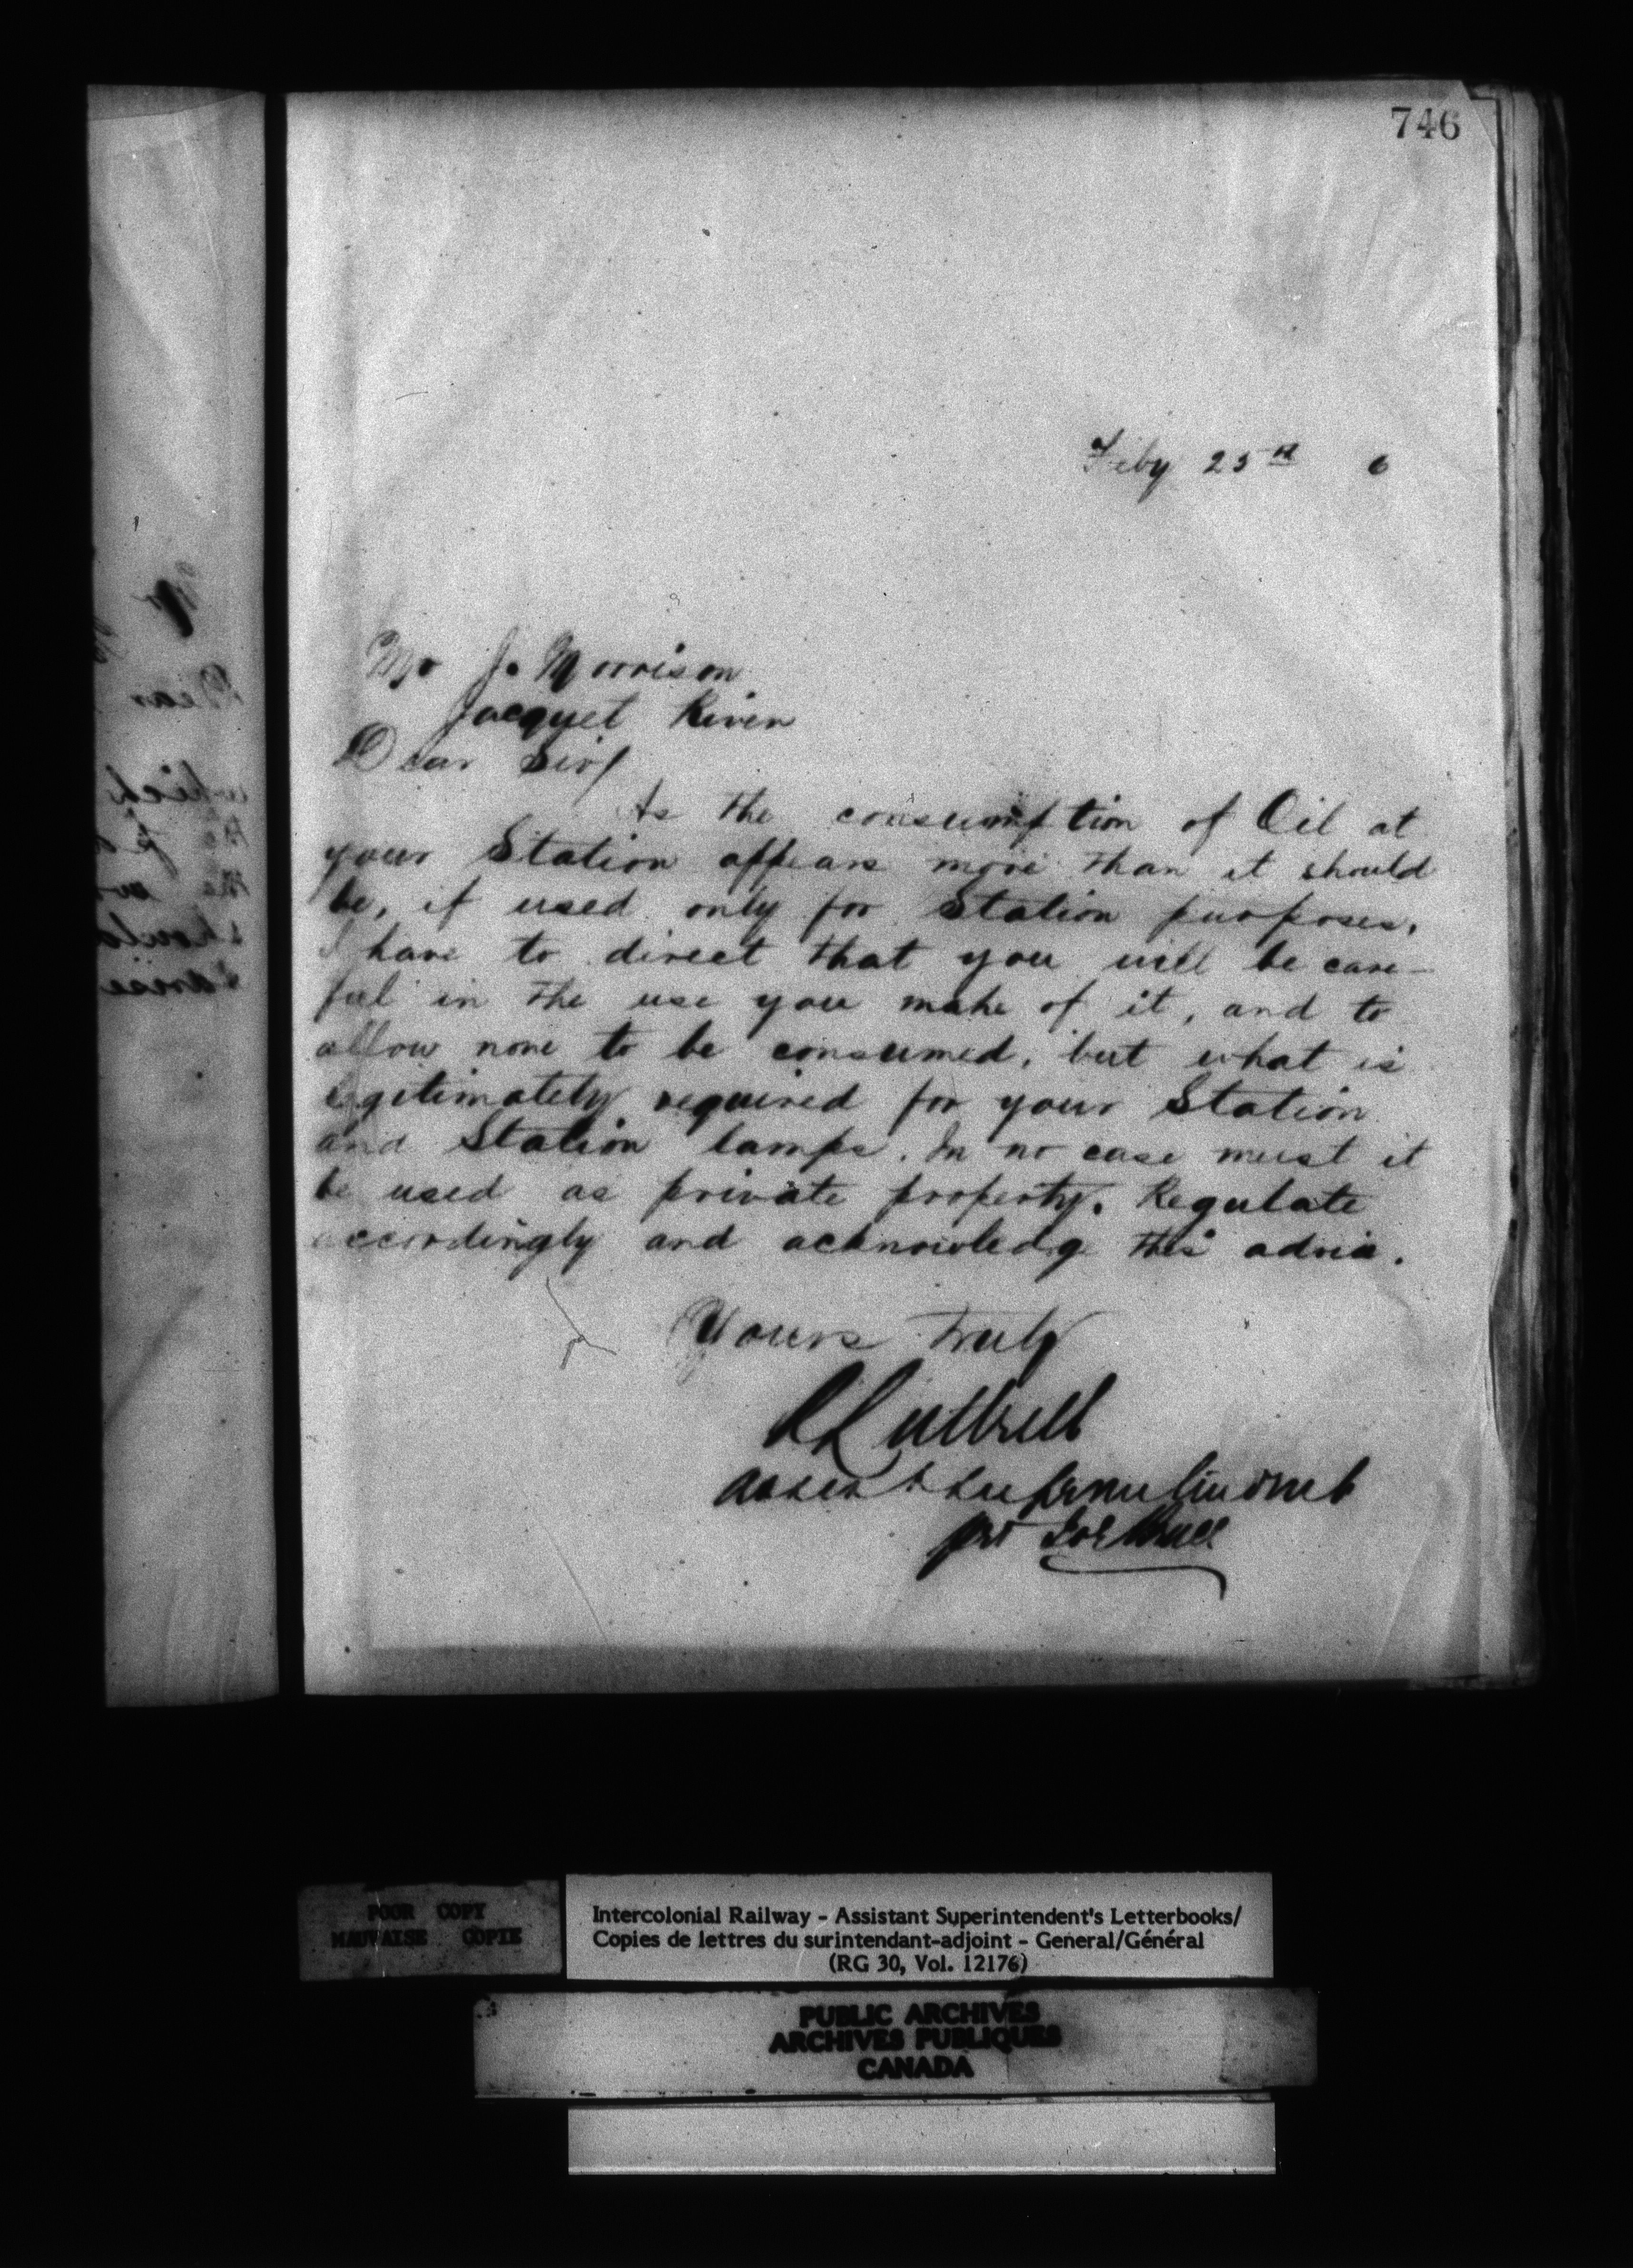 746
Feby 25th 6
Mr J. Morrison
Jacquet River
Dear Sir/
As the consumption of Oil at
your Station appears more than it should
be, if used only for Station purposes,
I have to direct that you will be care-
ful in the use you make of it, and to
allow none to be consumed, but what is
legitimately required for your Station
and Station lamps. In no case must it
be used as private property. Regulate
accordingly and acknowledg this advice.
Yours truly
R Luttrell
Assist Superintendent
per
POOR COPY
MAUVAISE COPIE
Intercolonial Railway - Assistant Superintendent's Letterbooks/
Copies de lettres du surintendant-adjoint - General/Général
(RG 30, Vol. 12176)
PUBLIC ARCHIVES
ARCHIVES PUBLIQUES
CANADA